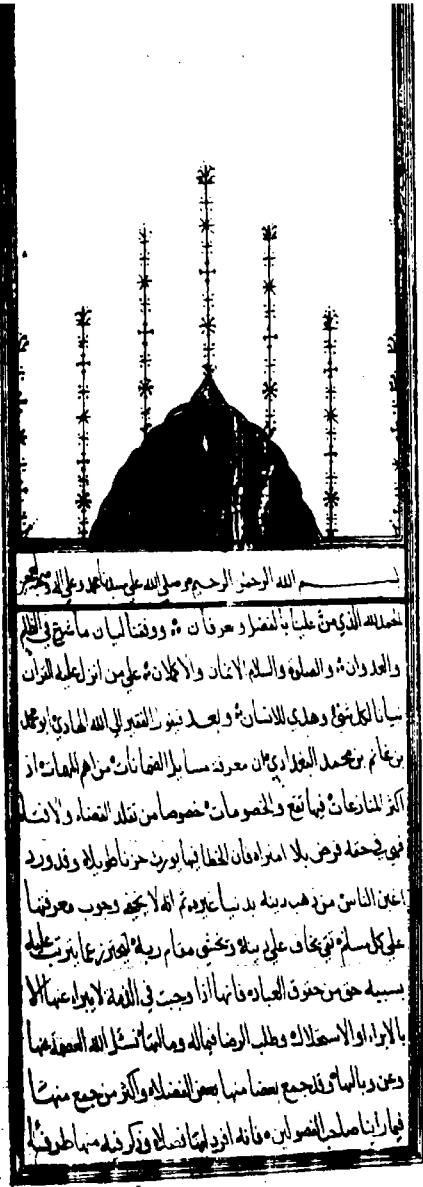 بسم الله الرحمن الرحيم وصلى الله على سيدنا محمد وعلى اله وصحبه
الحمد لله الذي من علينا بالفضل وعرفان ووفقنا لبيان ما غرم في الظلم
والعدوان والصلوة والسلام الاتمان والاكملان على من انزل عليه القران
تبيانا لكل شئ وهدي للانسان وبعد فيقول الفقير الي الله الهادي ابو محمد
بن غانم بن محمد البغدادي ان معرفة مسايل الضمانات من اهم المهمات اذ
اكثر المنازعات فيها تقع والخصومات خصوصا من تقلد القضاء والافتاء
فهي في حقه فرض بلا امتراء فان الخطا فيها يورث حزنا طويلا وقد ورد
اغبن الناس من ذهب دينه بدنيا غيره ثم انه لا يخفي وجوب معرفتها
علي كل مسلم تقي يخاف علي دينه ويخشي مقام ربه ليحترز عما يترتب عليه
بسببه حق من حقوق العباد فانها اذا وجبت في الذمة لا يبراء عنها الا
بالابراء او الاستحلال وطلب الرضا فيما له وما لها نسئل الله العصمة عنها
وعن وبالها وقد جمع بعضا منها بعض الفضلاء واكثر من جمع منها
فيما راينا صاحب الفصولين فانه افرد لها فصلا وذكر فيه منها طرفا